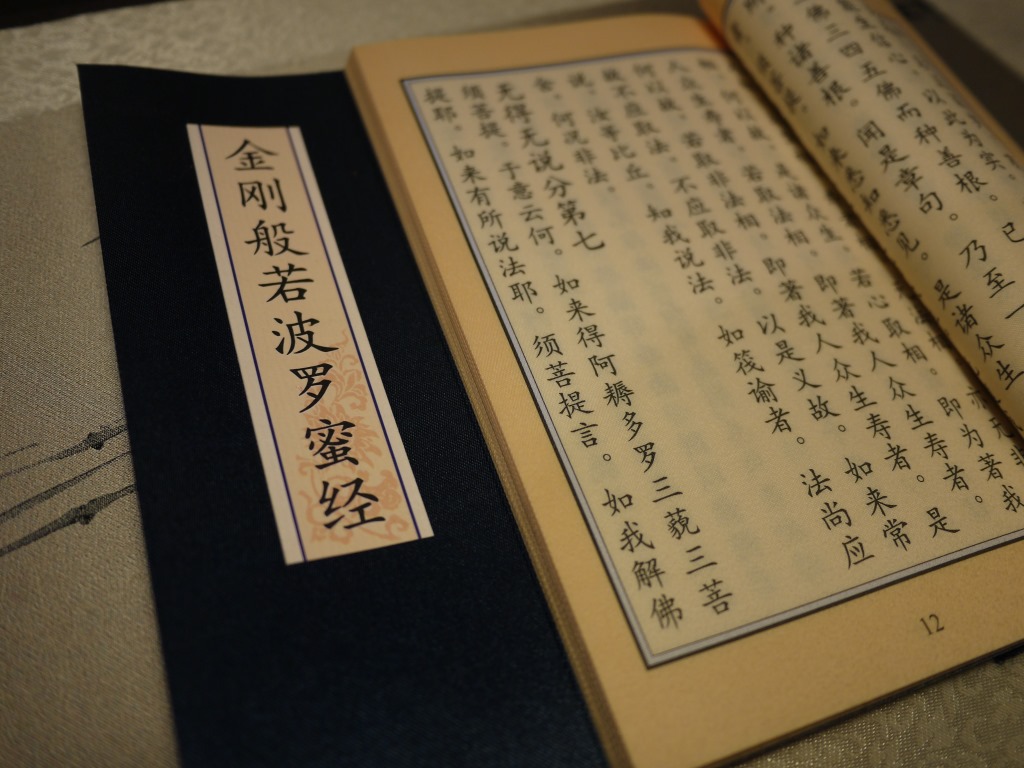 金刚般若波罗蜜经
生信心。以此为实。
已
佛三四五佛而种善根。乃至一
种诸善根。闻是章句。
如来悉知悉见。是诸众生
何以故。是诸众生。若心取相。即为著我
人众生寿者。若取法相。即著我人众生寿者。
何以故。若取非法相。即著我人众生寿者。是
故不应取法。不应取非法。以是义故。如来常
说。汝等比丘。知我说法。如筏喻者。法尚应
舍。何况非法。
无得无说分第七
须菩提。于意云何。如来得阿耨多罗三藐三菩
提耶。如来有所说法耶。须菩提言。如我解佛
12